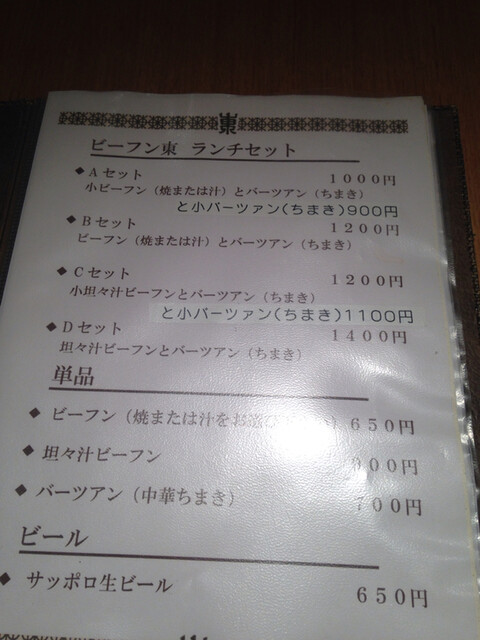 東
ビーフン東 ランチセット
◆Aセット 1000円
小ビーフン（焼または汁）とバーツアン（ちまき）
と小バーツァン(ちまき)900円
◆Bセット 1200円
ビーフン（焼または汁）とバーツアン（ちまき）
◆Cセット 1200円
小坦々汁ビーフンとバーツアン（ちまき）
と小バーツァン(ちまき)1100円
◆Dセット 1400円
坦々汁ビーフンとバーツアン（ちまき）
単品
◆ビーフン（焼または汁をお選び 650円
◆坦々汁ビーフン 800円
◆バーツアン（中華ちまき） 700円
ビール
◆サッポロ生ビール 650円